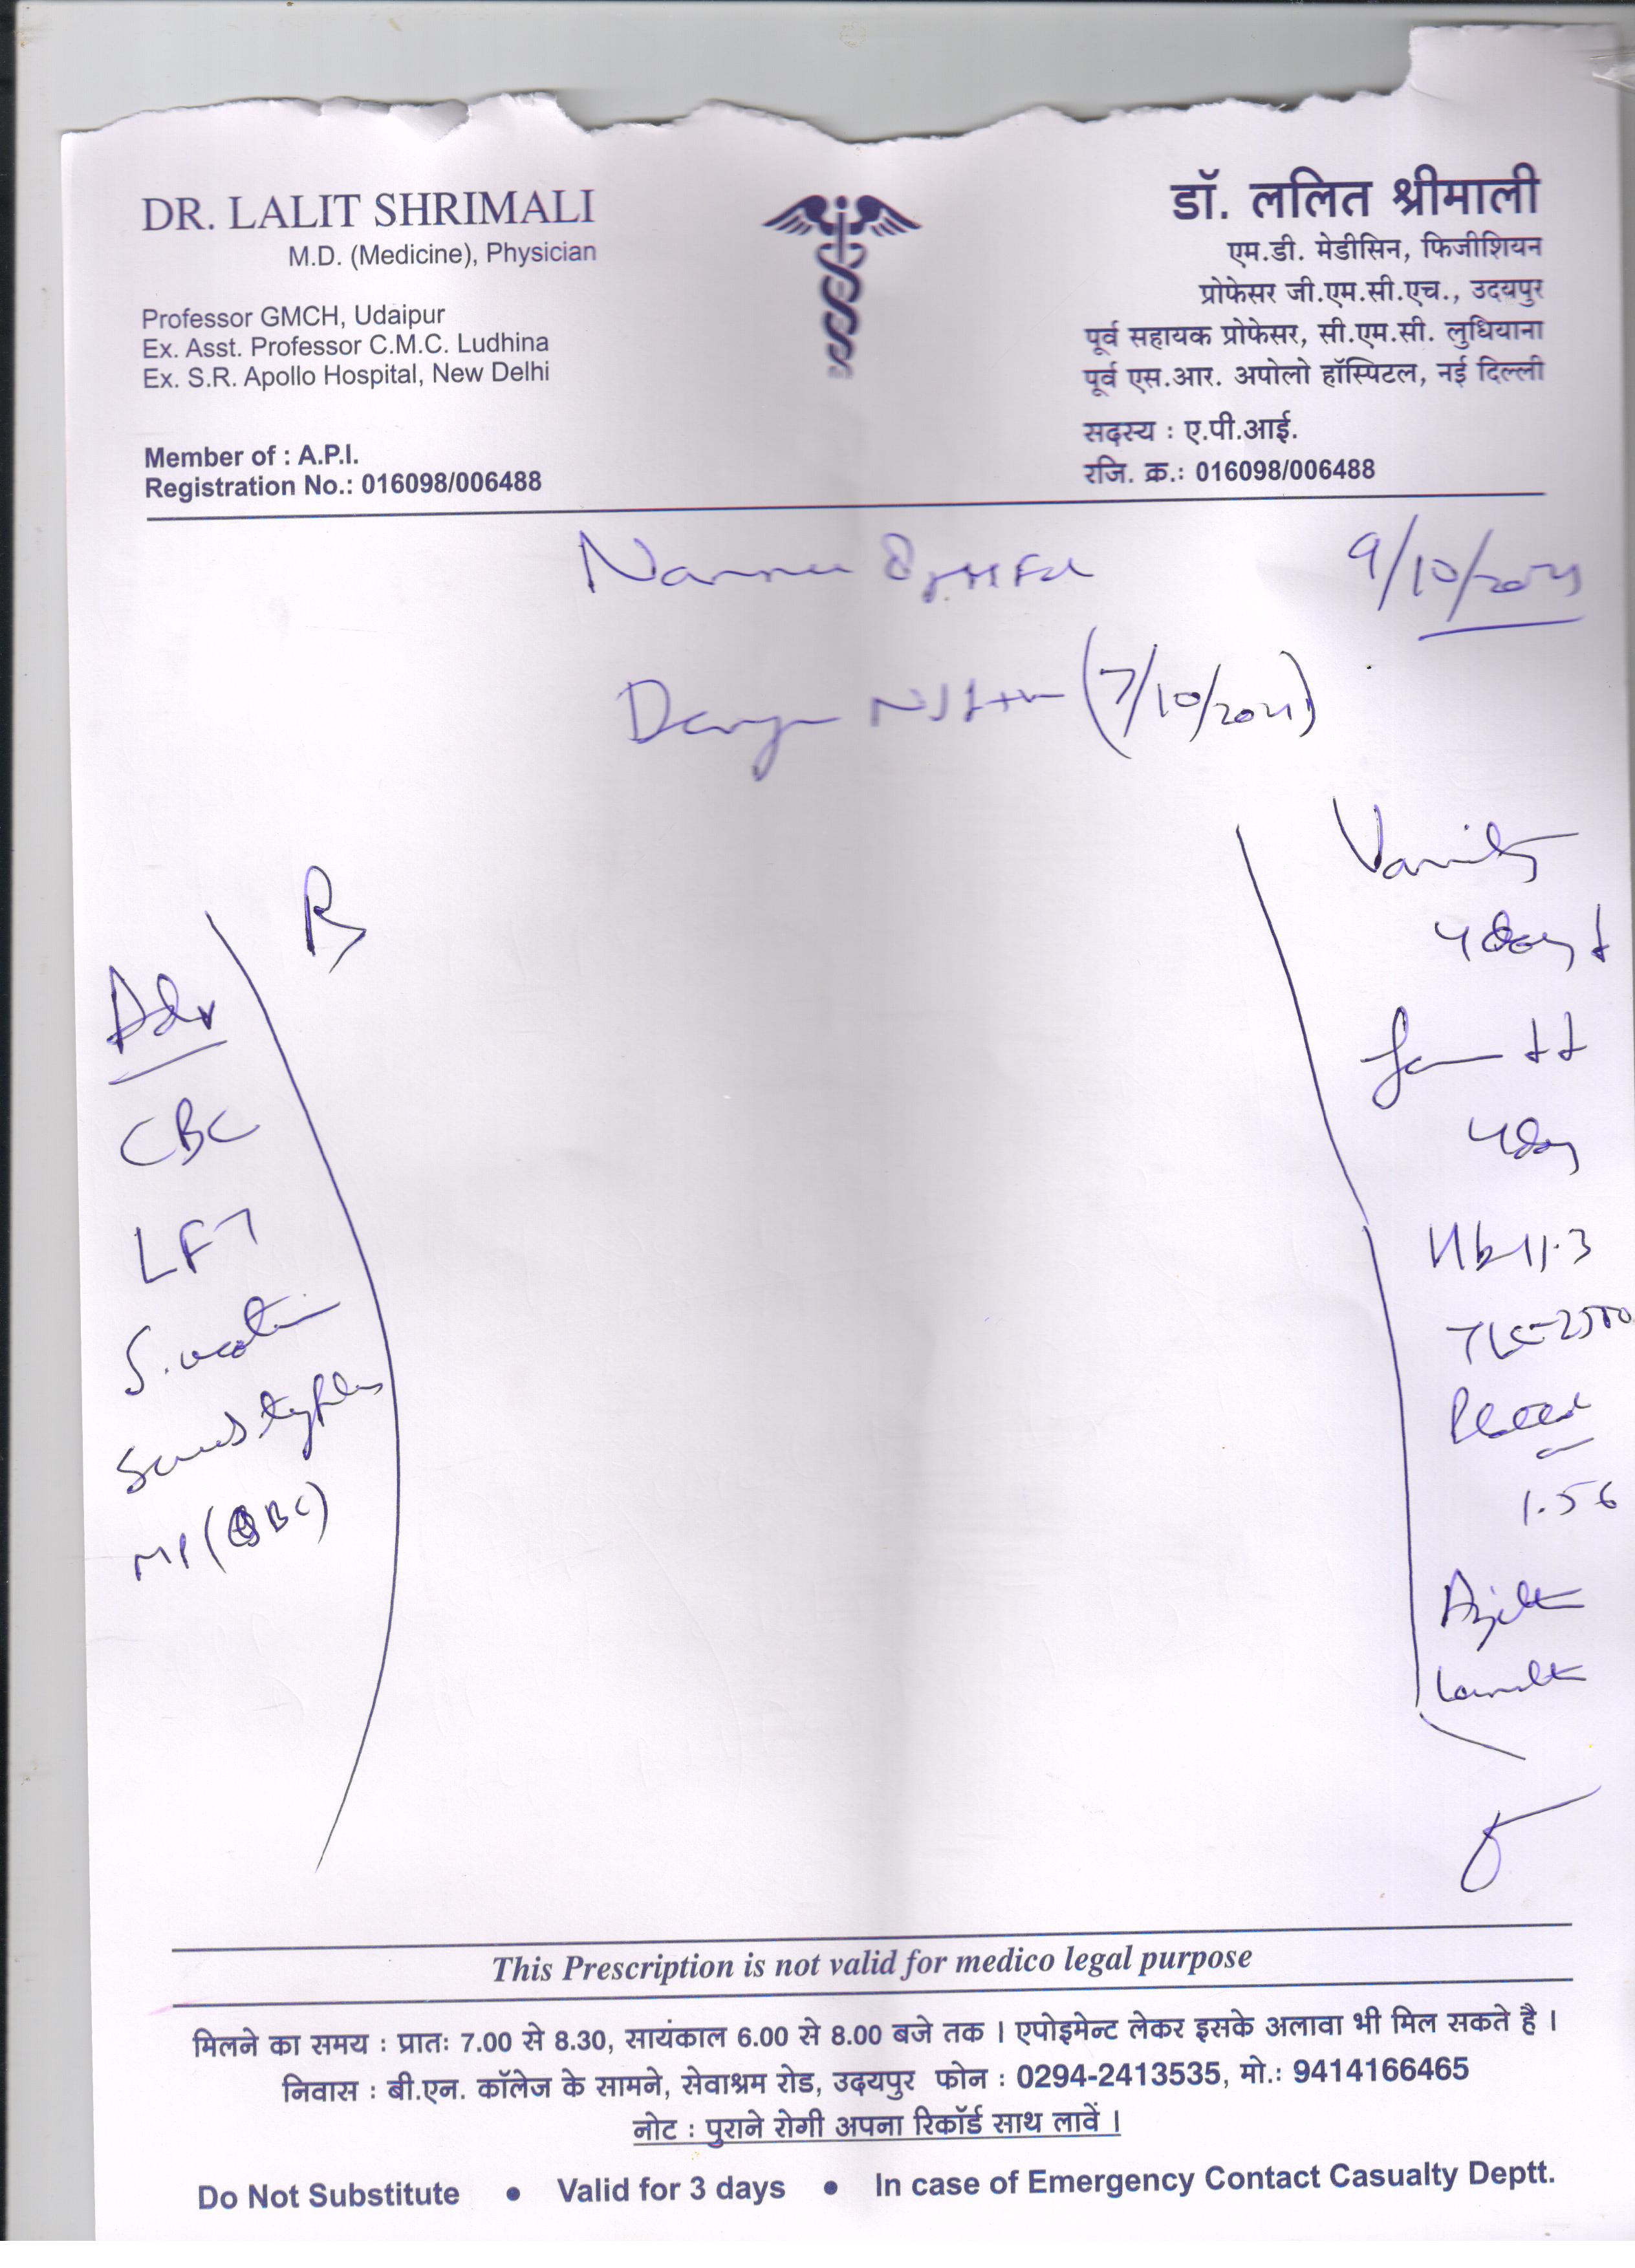 DR. LALIT SHRIMALI
M.D. (Medicine), Physician
Professor GMCH, Udaipur
Ex. Asst. Professor C.M.C. Ludhina
Ex. S.R. Apollo Hospital, New Delhi
Member of : A.P.I.
Registration No.: 016098/006488
डॉ. ललित श्रीमाली
एम.डी. मेडीसिन, फिजीशियन
प्रोफेसर जी.एम.सी.एच., उदयपुर
पूर्व सहायक प्रोफेसर, सी.एम.सी. लुधियाना
पूर्व एस.आर. अपोलो हॉस्पिटल, नई दिल्ली
सदस्य : ए.पी.आई.
रजि. क्र.: 016098/006488
9/10/2021
(7/10/2021)
Adv
CBC
LFT
MP (QBC)
4 day
4 day
Hb-11.3
TLC-2500
1.56
This Prescription is not valid for medico legal purpose
मिलने का समय : प्रातः 7.00 से 8.30, सायंकाल 6.00 से 8.00 बजे तक । एपोइमेन्ट लेकर इसके अलावा भी मिल सकते है ।
निवास : बी.एन. कॉलेज के सामने, सेवाश्रम रोड, उदयपुर फोन : 0294-2413535, मो.: 9414166465
नोट : पुराने रोगी अपना रिकॉर्ड साथ लावें ।
Do Not Substitute • Valid for 3 days • In case of Emergency Contact Casualty Deptt.